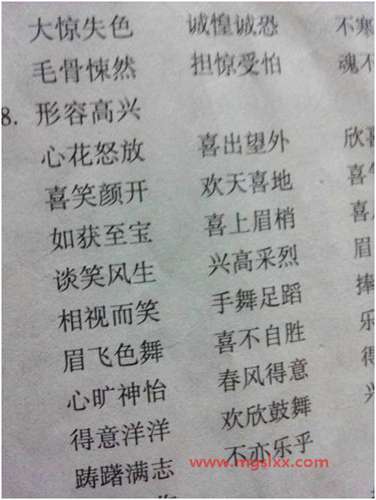 大惊失色 诚惶诚恐 不寒
毛骨悚然 担惊受怕 魂不
8. 形容高兴
心花怒放 喜出望外 欣喜
喜笑颜开 欢天喜地 喜
如获至宝 喜上眉梢 喜
谈笑风生 兴高采烈 眉
相视而笑 手舞足蹈 捧
眉飞色舞 喜不自胜 乐
心旷神怡 春风得意
得意洋洋 欢欣鼓舞
踌躇满志 不亦乐乎
www.mgslxx.com